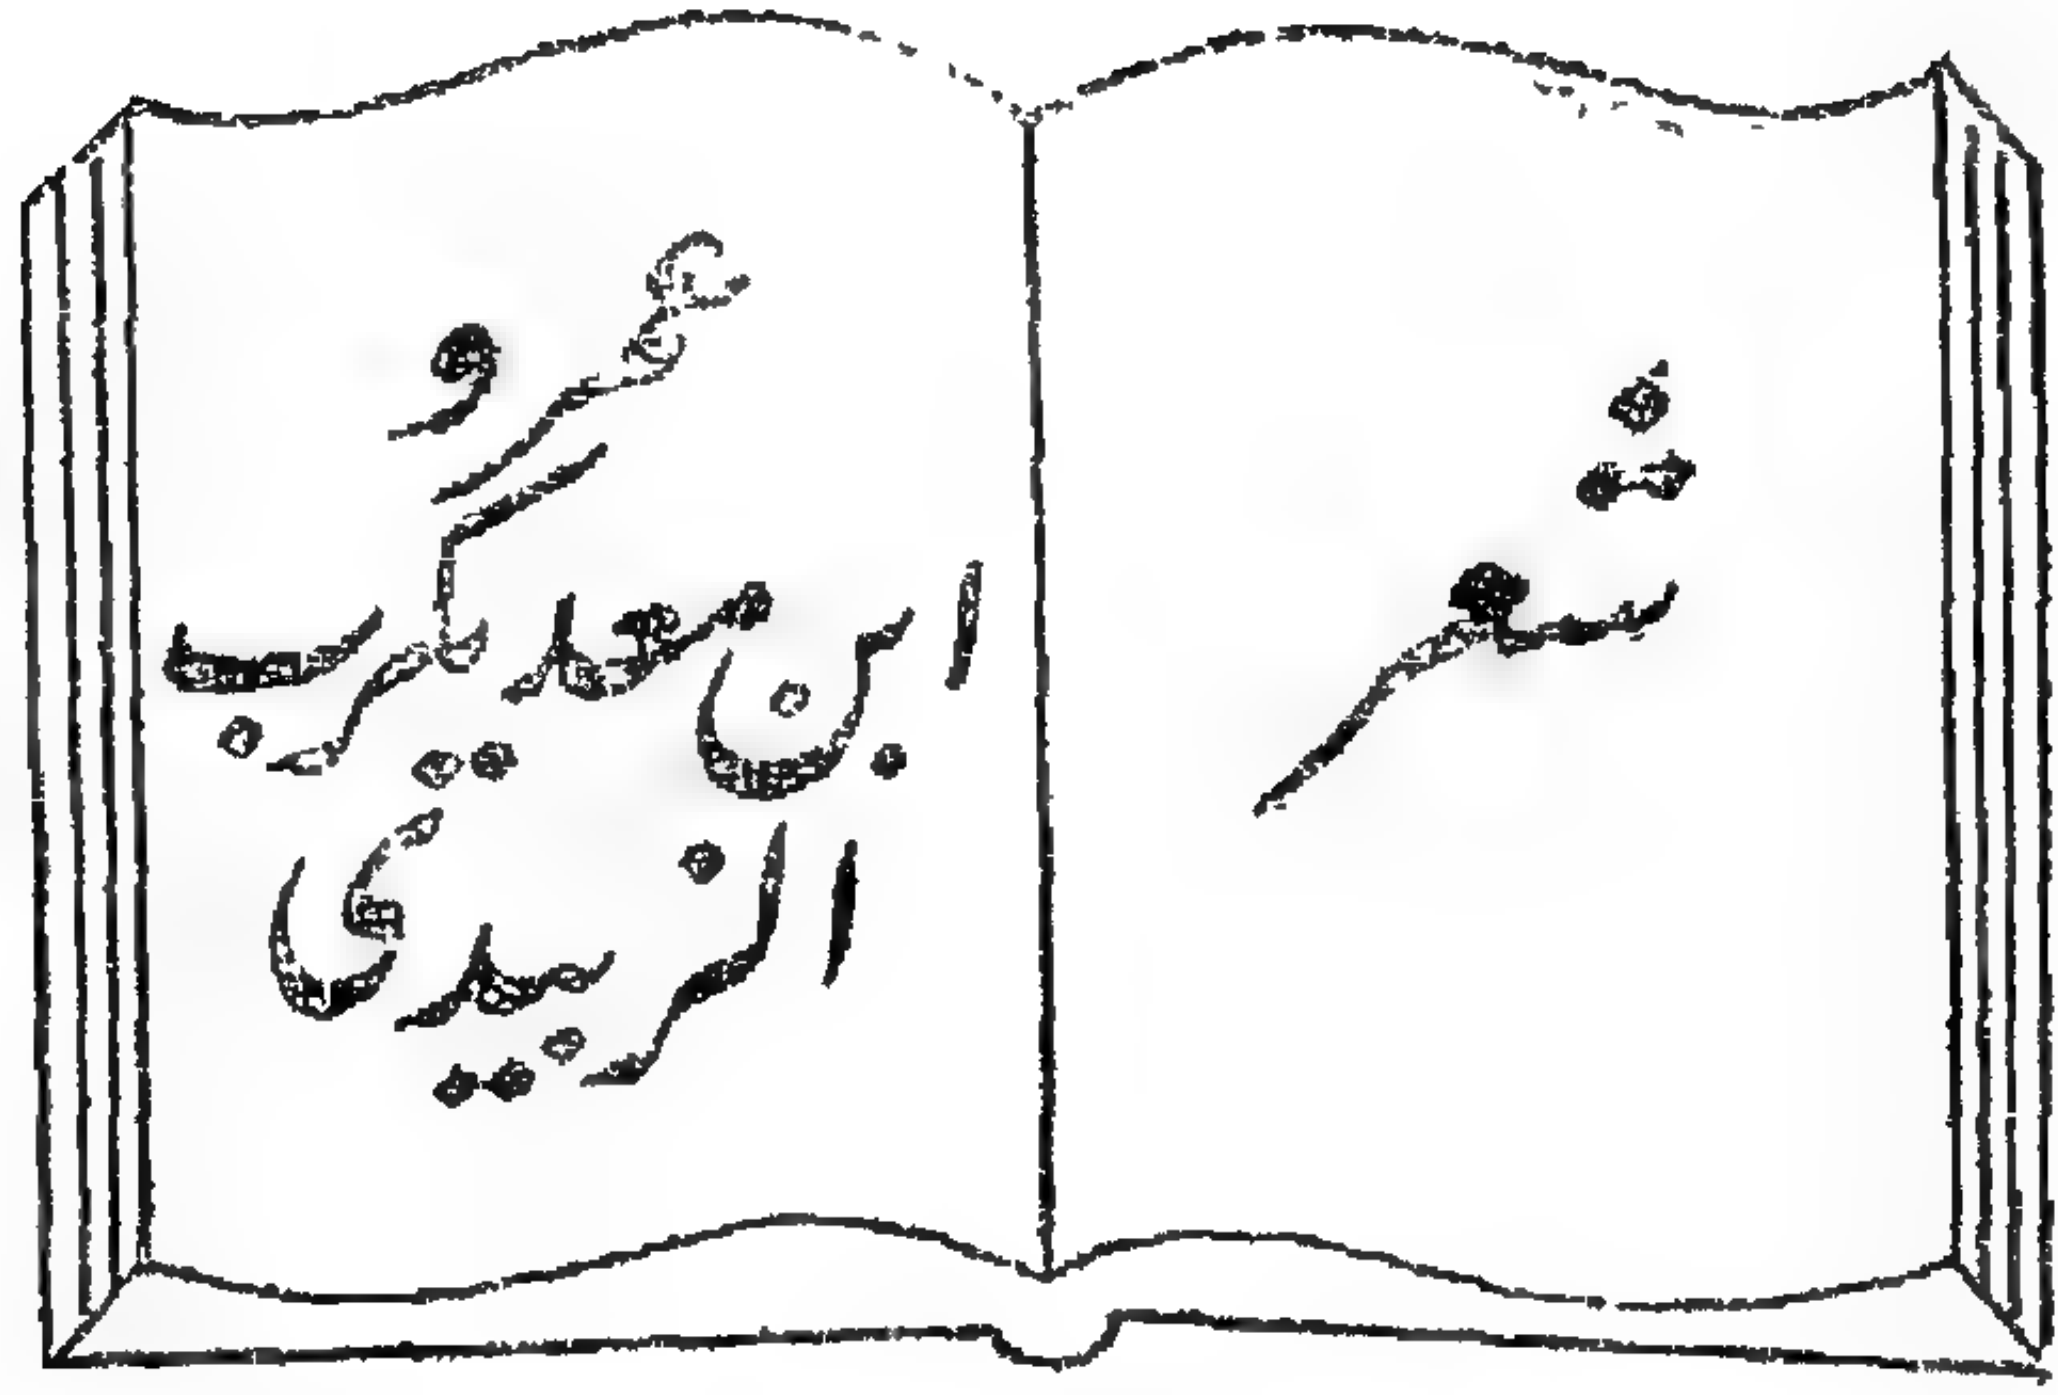 شعر
عمرو
ابن معديكرب
الزبيدى